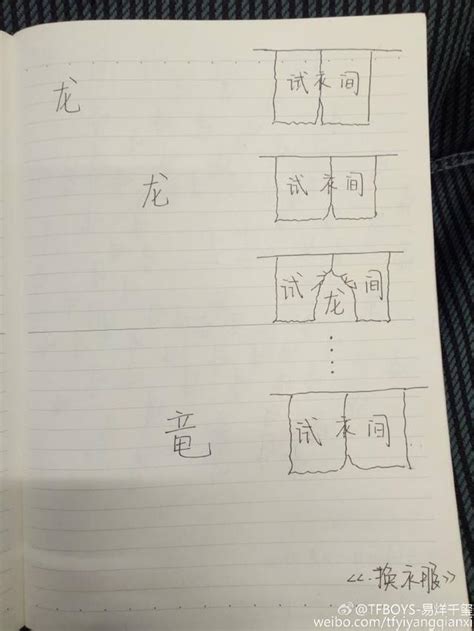 龙 试衣间
龙 试衣间
试衣间
龙
……
竜 试衣间
《换衣服》
@TFBOYS-易烊千玺
weibo.com/tfyiyangqianxi